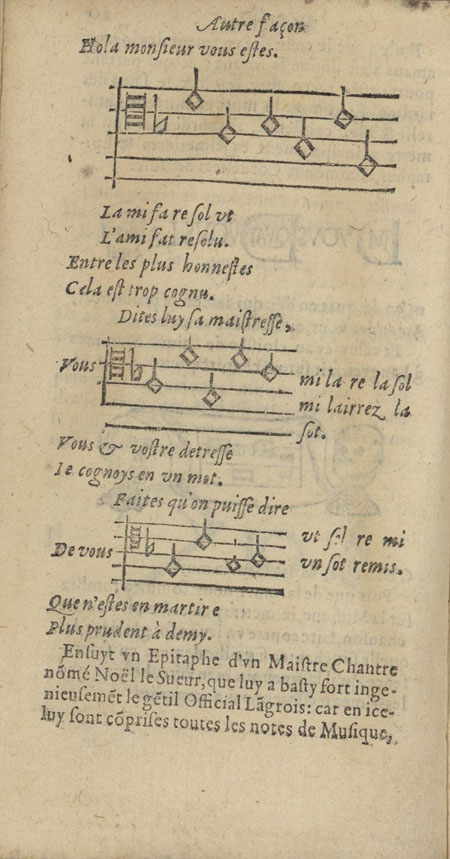 Autre façon
Hola monsieur vous estes.
La mi fa re sol vt
L'ami fat resolu.
Entre les plus honnestes
Cela est trop cognu.
Dites luy sa maistresse,
Vous
mi la re la sol
mi lairrez la
sot.
Vous & vostre detresse
Ie cognoys en vn mot.
Faites qu'on puisse dire
De vous
vt sol re mi
vn sot remis.
Que n'estes en martire
Plus prudent à demy.
Ensuyt vn Epitaphe d'vn Maistre Chantre
nõmé Noël le Sueur, que luy a basty fort inge-
nieusemẽt le gẽtil Official Lãgrois: car en ice-
luy sont cõprises toutes les notes de Musique,